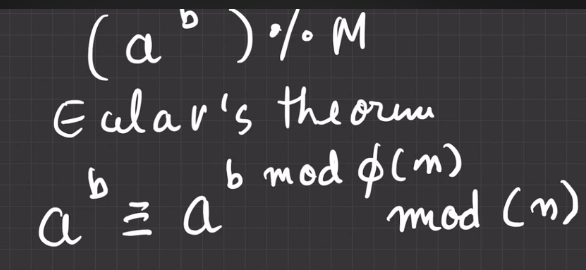 (a^b) % M
Eular's theorm
a^b ≡ a^(b mod ϕ(n)) mod (n)